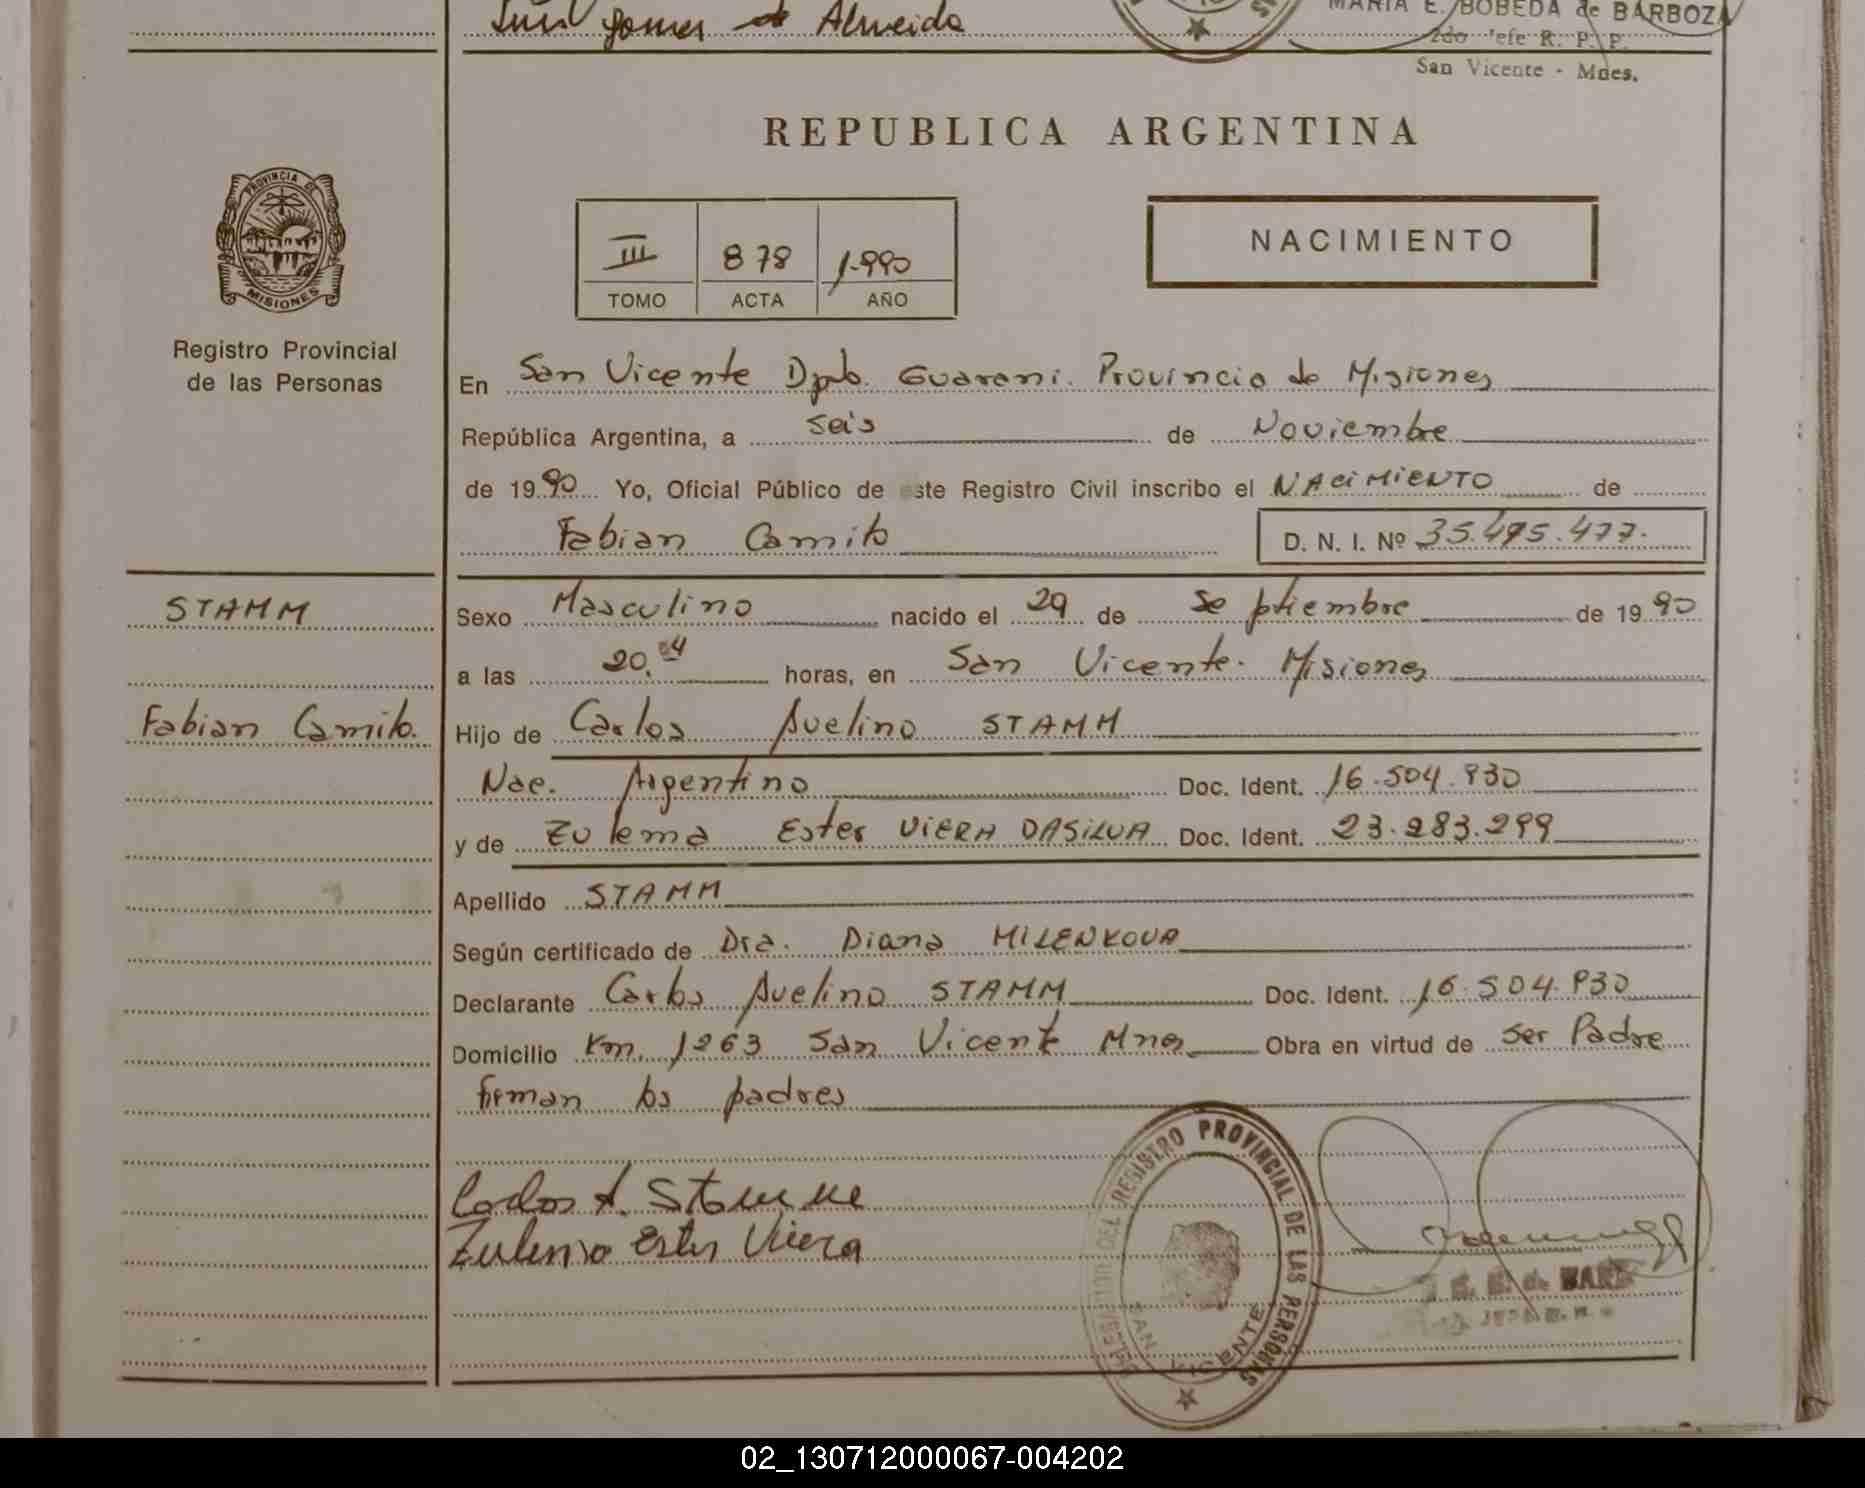 Luis Gomes de Almeida
MARIA E. BOBEDA de BARBOZA
2do Jefe R. P. P.
San Vicente - Mnes.
REPUBLICA ARGENTINA
PROVINCIA DE
MISIONES
Registro Provincial
de las Personas
III 878 1.990
TOMO ACTA AÑO
NACIMIENTO
En San Vicente Dpto. Guarani. Provincia de Misiones
República Argentina, a seis de Noviembre
de 1990 Yo, Oficial Público de este Registro Civil inscribo el NACIMIENTO de
Fabian Camilo D. N. I. Nº 35.495.477.
STAMM
Fabian Camilo.
Sexo Masculino nacido el 29 de Septiembre de 1990
a las 20.04 horas, en San Vicente. Misiones
Hijo de Carlos Avelino STAMM
Nac. Argentino Doc. Ident. 16.504.830
y de Zulema Ester VIERA DASILVA Doc. Ident. 23.283.299
Apellido STAMM
Según certificado de Dra. Diana MILENKOVA
Declarante Carlos Avelino STAMM Doc. Ident. 16.504.830
Domicilio Km. 1263 San Vicente Mnes Obra en virtud de Ser Padre
firman los padres
Carlos A. Stamm
Zulema Ester Viera
REGISTRO PROVINCIAL DE LAS PERSONAS
SAN VICENTE
02_130712000067-004202